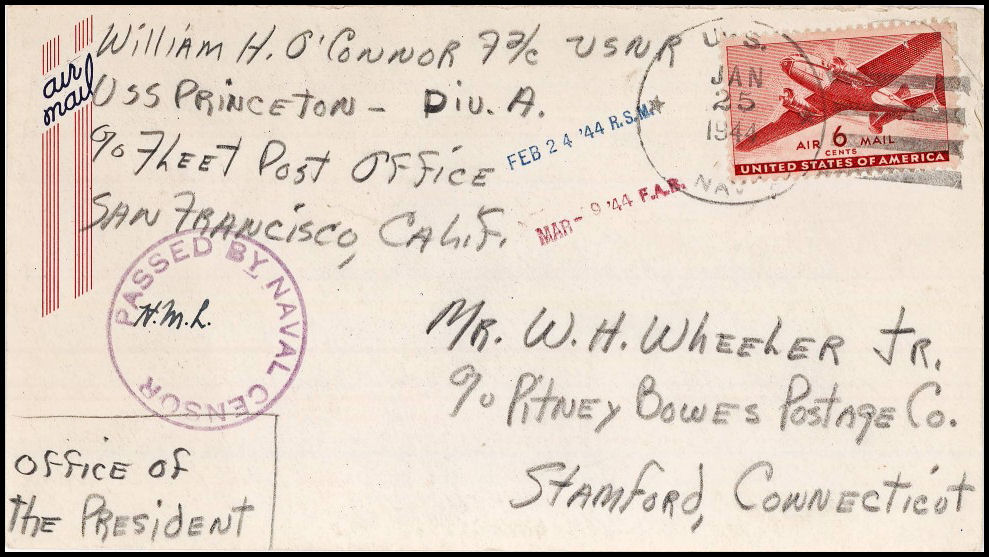 air mail
William H. O'Connor F2/c USNR
USS Princeton - Div. A.
c/o Fleet Post Office
San Francisco, Calif.
U.S.
JAN
25
1944
NAVY
AIR 6 MAIL
CENTS
UNITED STATES OF AMERICA
FEB 24 '44 R.S.M.
MAR - 9 '44 F.A.R.
PASSED BY NAVAL CENSOR
H.M.L.
Mr. W. H. Wheeler Jr.
c/o Pitney Bowes Postage Co.
Stamford, Connecticut
Office of
the President